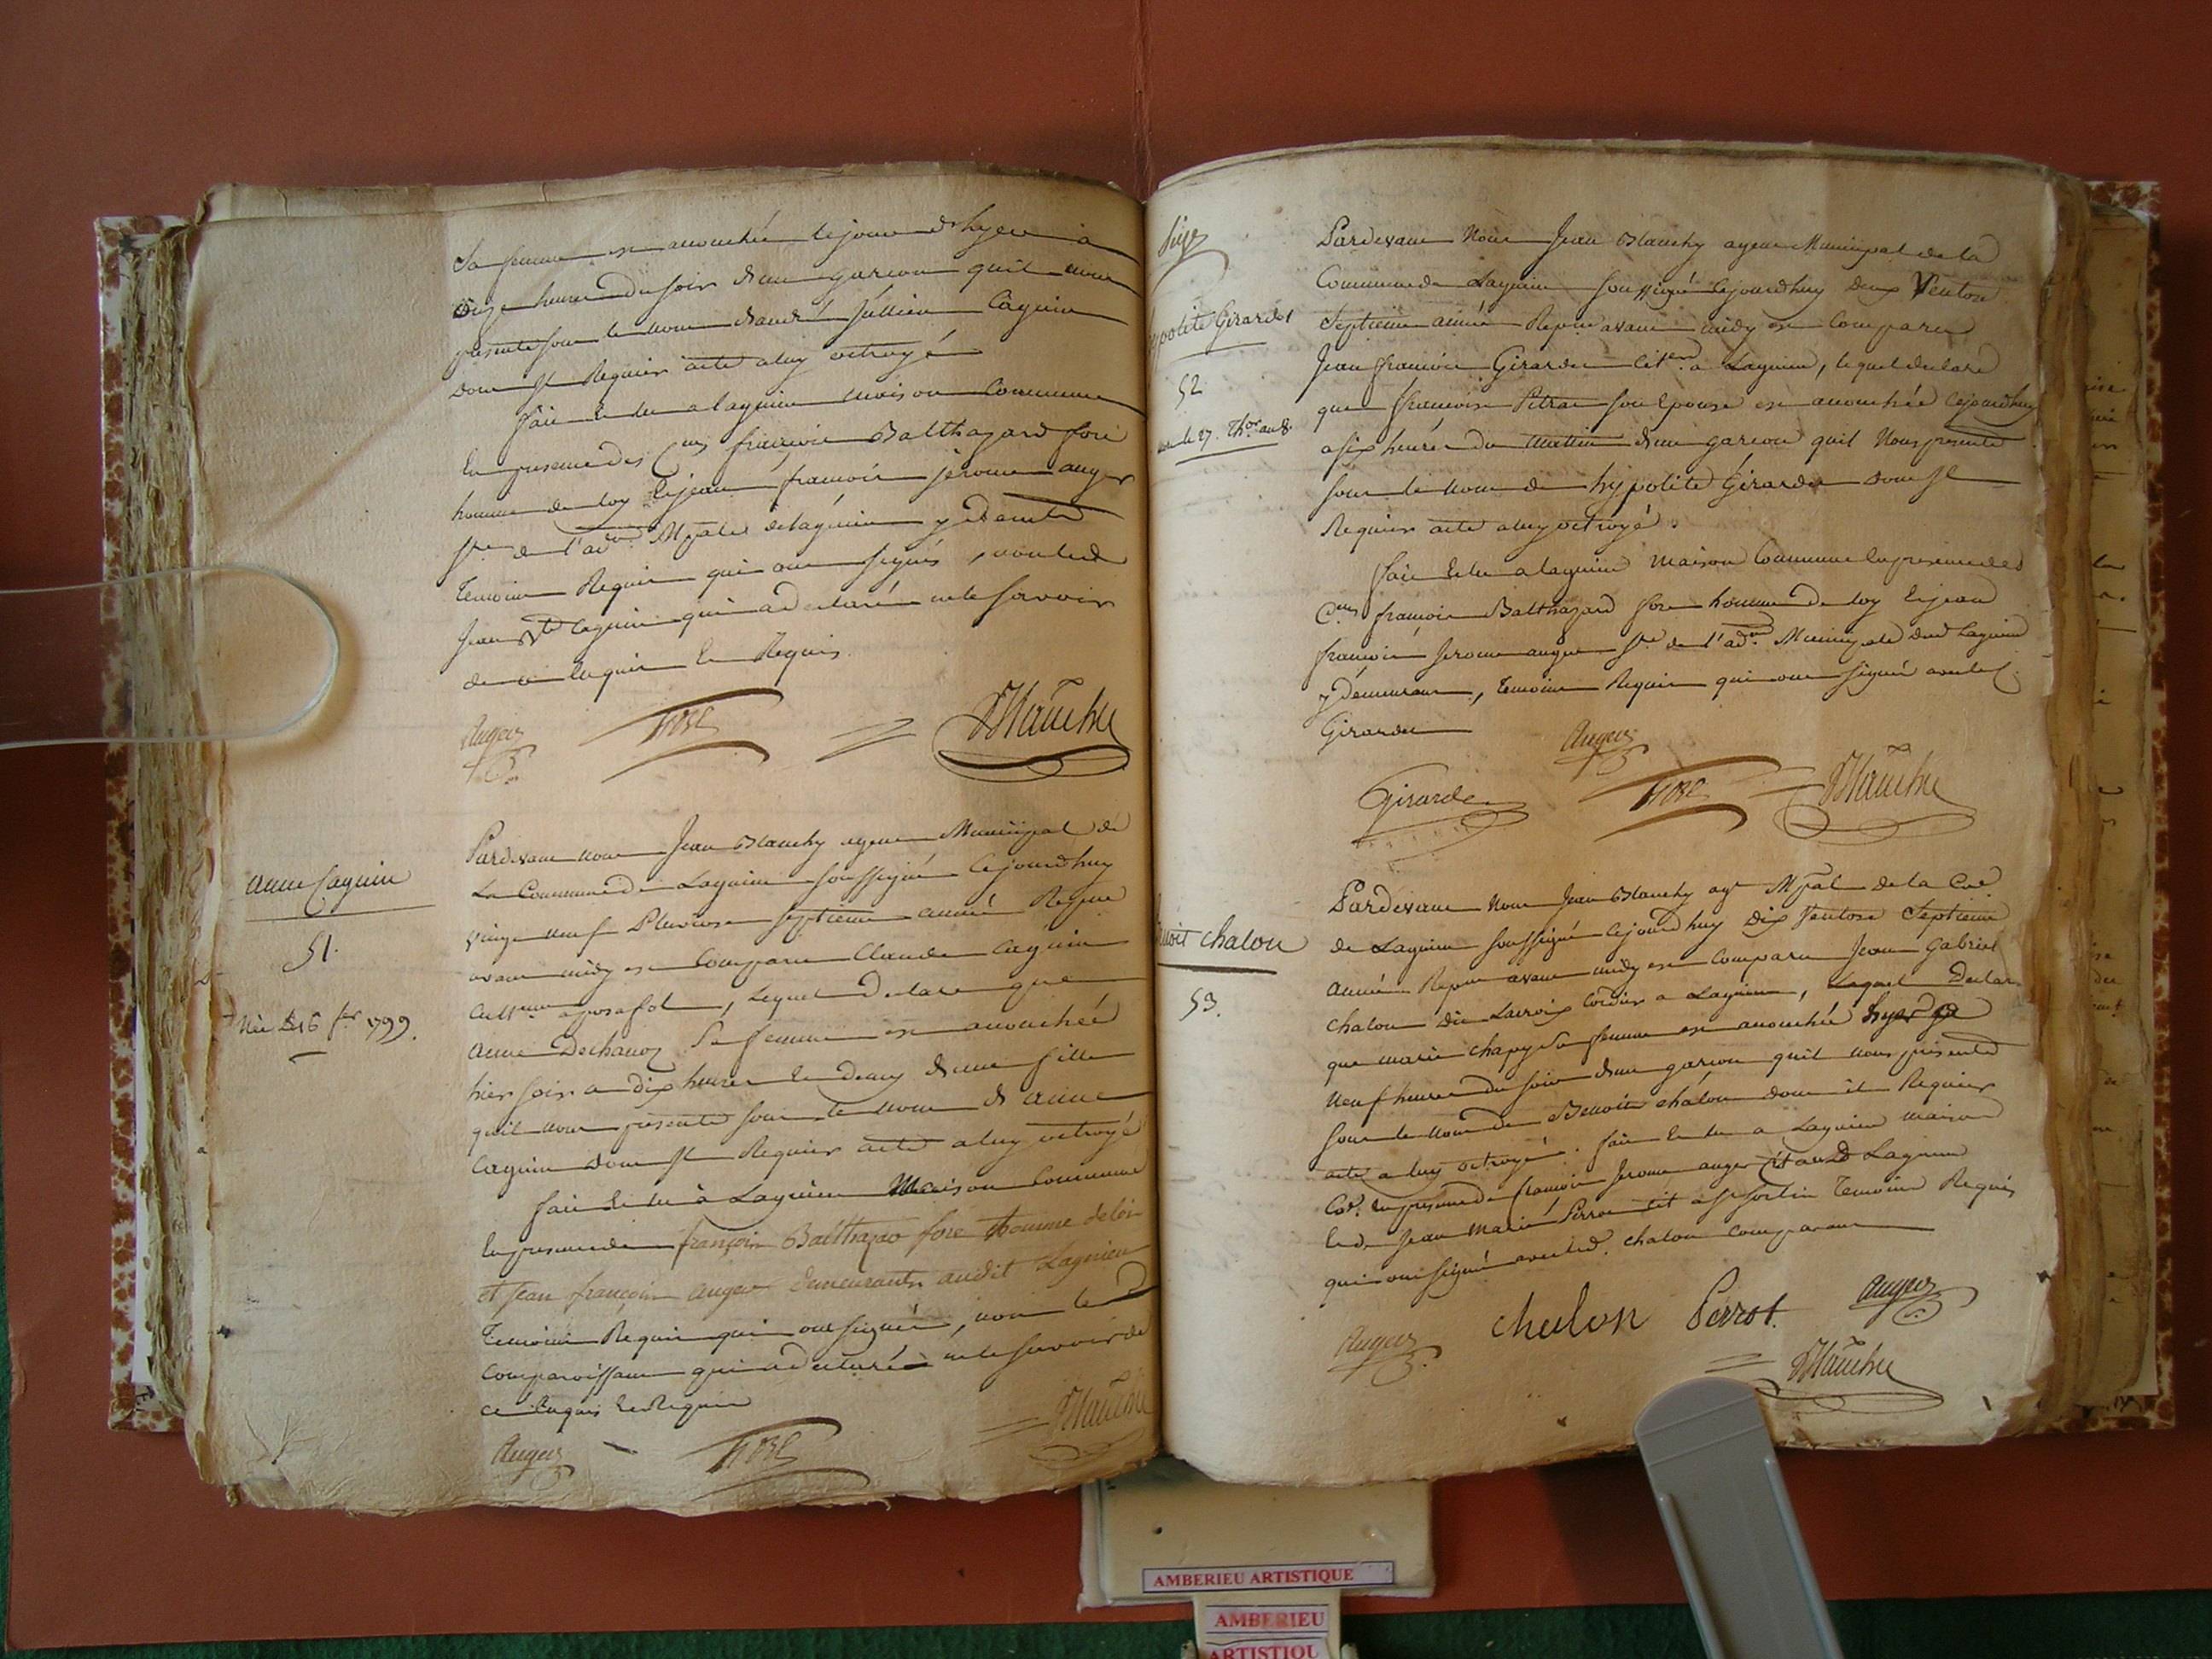 Sa femme est accouchée le jour d'hyer à
onze heures du soir d'un garcon quil nous
presente sous le nom d'andré Jullien Caguin
dont Il Requier acte a luy octroyé
fait et lu a lagnieu maison Commune
En presence des Cens francois Balthazard fore
homme de loy et jean francois jerome auger
Sre de l'adon Mpale de lagnieu y demts
temoins Requis qui ont signés, non led
Jean Bte Caguin qui a declaré ne le scavoir
de ce Enquis et Requis
Auger fore Blanchy
anne Caguin
51.
Née le 16 fer 1799.
Pardevant nous Jean Blanchy agent Municipal de
La Commune de Lagnieu soussigné Cejourdhuy
vingt neuf Pluviose septieme année Repue
avant midy est Comparu Claude Caguin
Cultteur a posafol, Lequel declare que
anne Dechanoz Sa femme est accouchée
hier soir a dix heures et demy d'une fille
quil nous presente sous le nom d'anne
Caguin dont Il Requier acte a luy octroyé
fait et lu à Lagnieu Maison Commune
En presence de françois Balthazar fore homme de loi
et jean françois auger demeurants audit Lagnieu
temoins Requis qui ont signés, non le d
Comparoissant qui a declaré ne le scavoir de
ce Enquis et Requis
Auger fore Blanchy
hypolite Girardet
52
le 27. Thor an 8.
Pardevant Nous Jean Blanchy agent Municipal de la
Commune de Lagnieu soussigné Cejourdhuy deux Ventose
Septieme année Repue avant midy est Comparu
Jean francois Girardet Citen a Lagnieu, lequel declare
que francoise Pitrat son Epouse est accouchée Cejourdhuy
a six heures du matin d'un garcon quil Nous presente
sous le nom de hypolite Girardet dont Il
Requier acte a luy octroyé.
fait et lu a lagnieu Maison Commune En presence des
Cens francois Balthazard fore homme de loy et jean
francois Jerome auger Sre de l'adon Municipale dud Lagnieu
y demeurant, temoins Requis qui ont signé avec led.
Girardet
Auger
Girardet fore Blanchy
Benoit chalon
53.
Pardevant Nous Jean Blanchy agt Mpal de la Cne
de Lagnieu soussigné Cejourdhuy dix Ventose Septieme
année Repue avant midy est Comparu Jean Gabriel
chalon dit Lacroix Cordier a Lagnieu, Lequel Declare
que marie chapy sa femme est accouchée hyer a
Neuf heures du soir d'un garcon quil nous presente
sous le nom de Benoit chalon dont il Requier
acte a luy octroyé. fait et lu a Lagnieu maison
Cne. En presence de francois Jerome auger Cit aud Lagnieu
et de Jean Marie Perrot Cit a St sorlin temoins Requis
qui ont signé avec led. chalon Comparant
Auger chalon Perrot. Auger
Blanchy
AMBERIEU ARTISTIQUE
AMBERIEU
ARTISTIQU